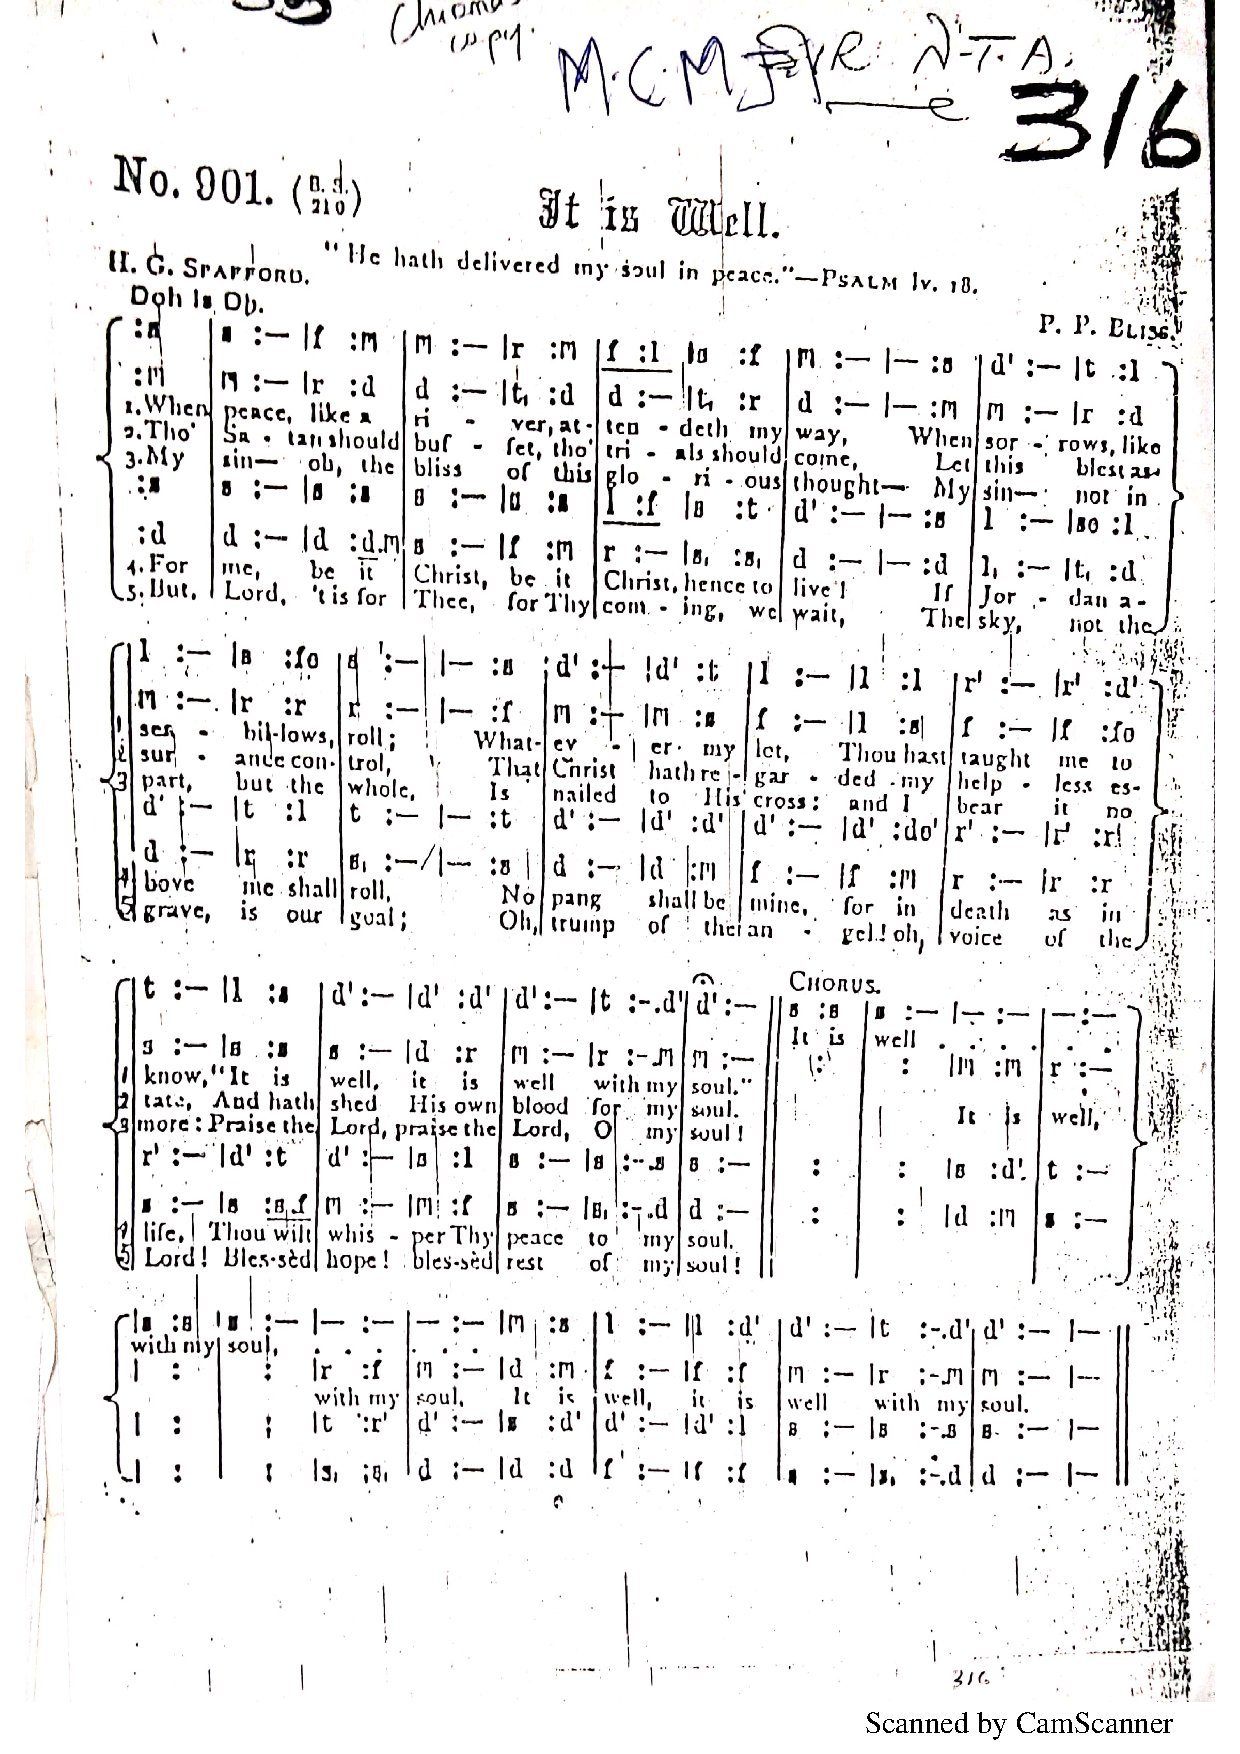 copy.
M.C.M
N.T.A.
316
No. 901. (B. d. 210)
It is Well.
"He hath delivered my soul in peace."—PSALM lv. 18.
H. G. SPAFFORD.
Doh is Db.
P. P. BLISS.
:s | s :— |f :m | m :— |r :m | f :l |s :f | m :— |— :s | d' :— |t :l
:m | m :— |r :d | d :— |t, :d | d :— |t, :r | d :— |— :m | m :— |r :d
1. When peace, like a ri - ver, at- ten - deth my way, When sor - rows, like
2. Tho' Sa - tan should buf - fet, tho' tri - als should come, Let this blest as-
3. My sin— oh, the bliss of this glo - ri - ous thought— My sin— not in
:s | s :— |s :s | s :— |s :s | l :f |s :t | d' :— |— :s | l :— |se :l
:d | d :— |d :d.m | s :— |f :m | r :— |s, :s, | d :— |— :d | l, :— |t, :d
4. For me, be it Christ, be it Christ, hence to live! If Jor - dan a-
5. But, Lord, 'tis for Thee, for Thy com - ing, we wait, The sky, not the
l :— |s :fe | s :— |— :s | d' :— |d' :t | l :— |l :l | r' :— |r' :d'
m :— |r :r | r :— |— :f | m :— |m :s | f :— |l :s | f :— |f :fe
1 sea - bil-lows, roll; What- ev - er my lot, Thou hast taught me to
2 sur - ance con- trol, That Christ hath re - gar - ded my help - less es-
3 part, but the whole, Is nailed to His cross: and I bear it no
d' :— |t :l | t :— |— :t | d' :— |d' :d' | d' :— |d' :de' | r' :— |r' :r'
d :— |r :r | s, :— |— :s | d :— |d :m | f :— |f :m | r :— |r :r
4 bove me shall roll, No pang shall be mine, for in death as in
5 grave, is our goal; Oh, trump of the an - gel! oh, voice of the
t :— |l :s | d' :— |d' :d' | d' :— |t :-.d' | d' :—
CHORUS.
s :s | s :— |— :— | — :—
It is well . . . . .
s :— |s :s | s :— |d :r | m :— |r :-.m | m :— | : | : |m :m | r :—
1 know, "It is well, it is well with my soul."
2 tate, And hath shed His own blood for my soul. It is well,
3 more: Praise the Lord, praise the Lord, O my soul!
r' :— |d' :t | d' :— |s :l | s :— |s :-.s | s :— | : | : |s :d' | t :—
s :— |s :s.f | m :— |m :f | s :— |s, :-.d | d :— | : | : |d :m | s :—
4 life, Thou wilt whis - per Thy peace to my soul.
5 Lord! Bles-sèd hope! bles-sèd rest of my soul!
|s :s | s :— |— :— | — :— |m :s | l :— |l :d' | d' :— |t :-.d' | d' :— |—
with my soul, . . . . . .
| : | : |r :f | m :— |d :m | f :— |f :f | m :— |r :-.m | m :— |—
with my soul, It is well, it is well with my soul.
| : | : |t :r' | d' :— |s :d' | d' :— |d' :l | s :— |s :-.s | s :— |—
| : | : |s, :s, | d :— |d :d | f :— |f :f | s :— |s, :-.d | d :— |—
316
Scanned by CamScanner